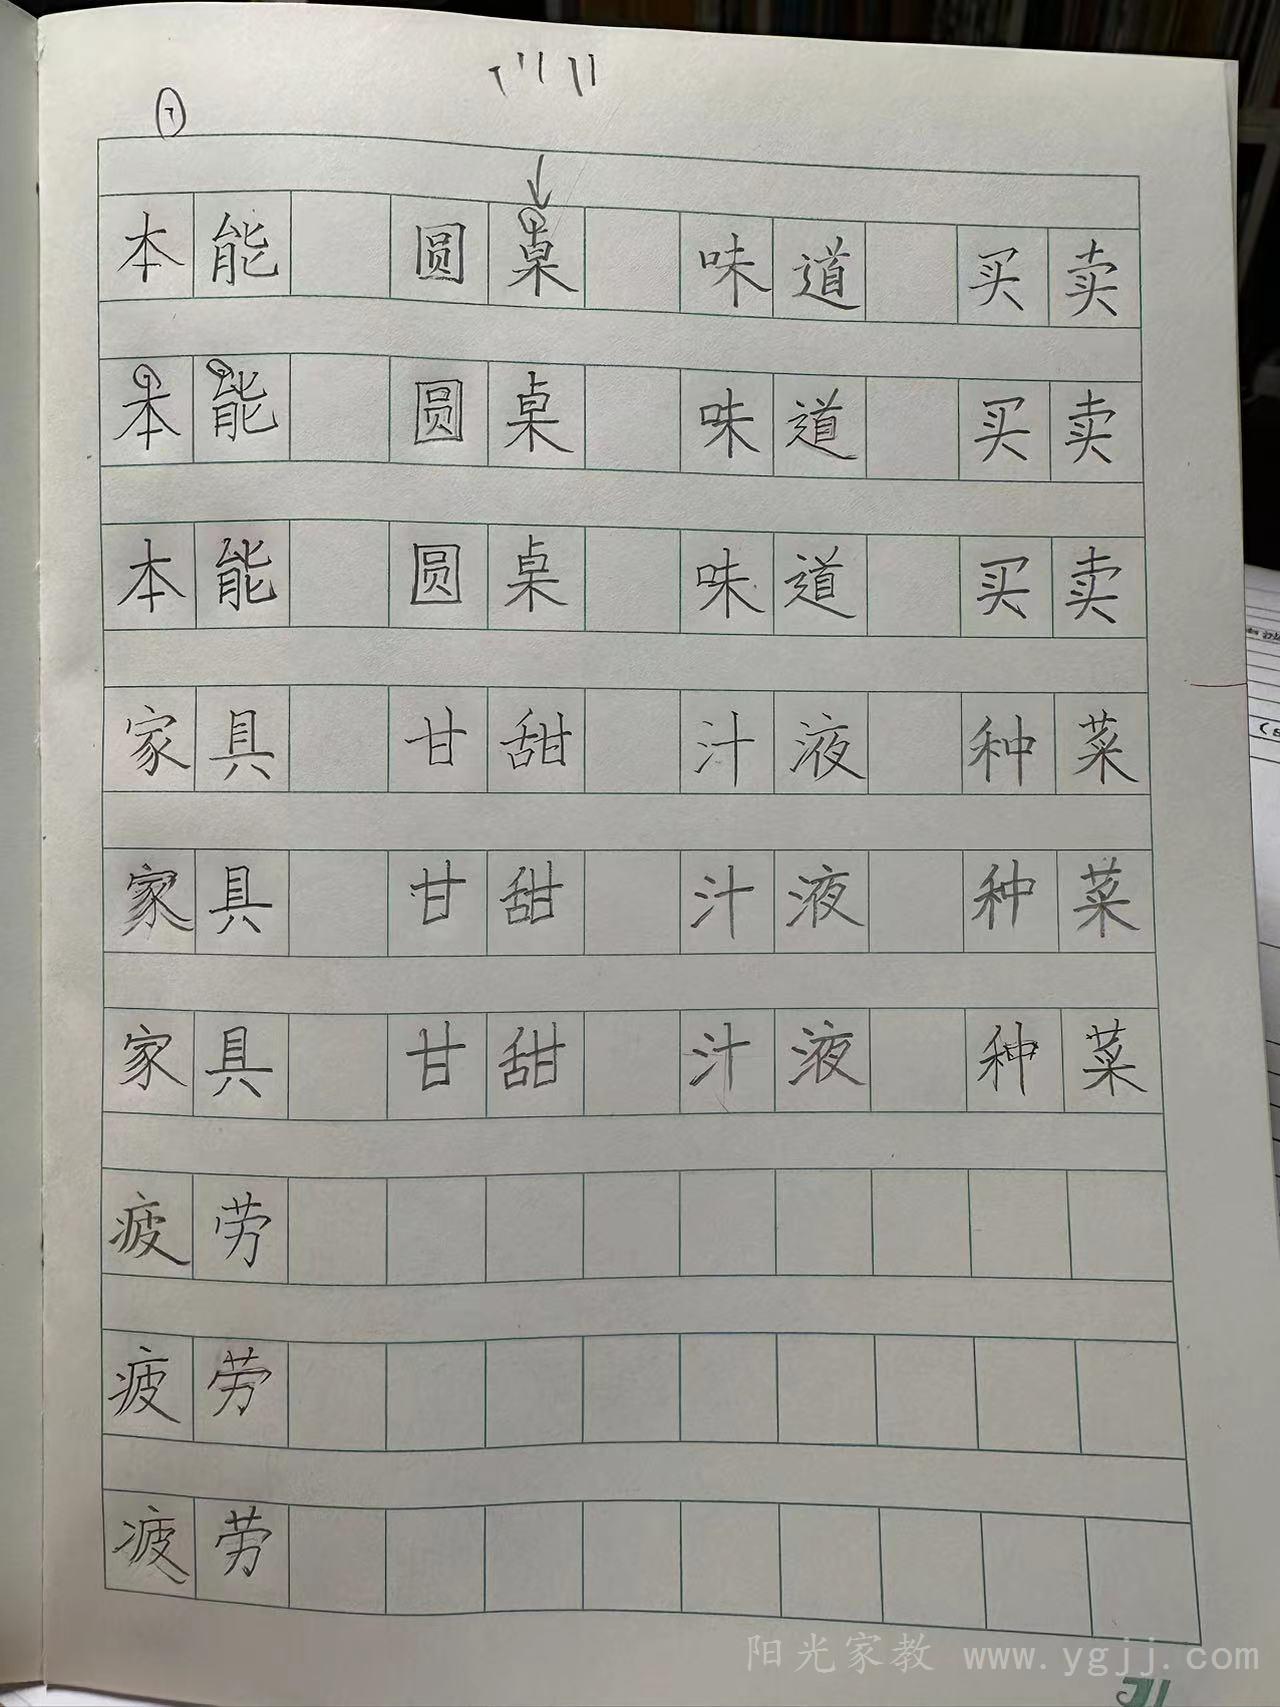 本能 圆桌 味道 买卖
本能 圆桌 味道 买卖
本能 圆桌 味道 买卖
家具 甘甜 汁液 种菜
家具 甘甜 汁液 种菜
家具 甘甜 汁液 种菜
疲劳
疲劳
疲劳
阳光家教 www.ygjj.com